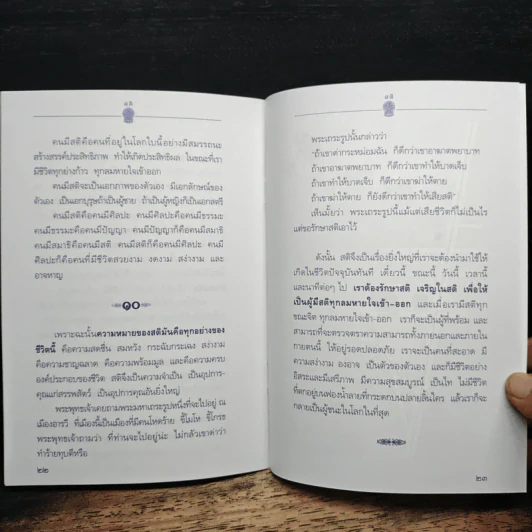 สติ
คนมีสติคือคนที่อยู่ในโลกใบนี้อย่างมีสมรรถนะ
สร้างสรรค์ประสิทธิภาพ ทำให้เกิดประสิทธิผล ในขณะที่เรา
มีชีวิตทุกย่างก้าว ทุกลมหายใจเข้าออก
คนมีสติจะเป็นเอกภาพของตัวเอง มีเอกลักษณ์ของ
ตัวเอง เป็นเอกบุรุษถ้าเป็นผู้ชาย ถ้าเป็นผู้หญิงก็เป็นเอกสตรี
คนมีสติคือคนมีศิลปะ คนมีศิลปะคือคนมีธรรมะ
คนมีธรรมะคือคนมีปัญญา คนมีปัญญาก็คือคนมีสมาธิ
คนมีสมาธิคือคนมีสติ คนมีสติก็คือคนมีศิลปะ คนมี
ศิลปะก็คือคนที่มีชีวิตสวยงาม งดงาม สง่างาม และ
อาจหาญ
๑๐
เพราะฉะนั้นความหมายของสติมันคือทุกอย่างของ
ชีวิตนี้ คือความสดชื่น สมหวัง กระฉับกระเฉง สง่างาม
คือความชาญฉลาด คือความพร้อมมูล และคือความครบ
องค์ประกอบของชีวิต สติจึงเป็นความจำเป็น เป็นอุปการ-
คุณแก่สรรพสัตว์ เป็นอุปการคุณอันยิ่งใหญ่
พระพุทธเจ้าเคยถามพระมหาเถระรูปหนึ่งที่จะไปอยู่ ณ
เมืองอารวี ที่เมืองนี้เป็นเมืองที่มีคนโหดร้าย ขี้โมโห ขี้โกรธ
พระพุทธเจ้าถามว่า ที่ท่านจะไปอยู่น่ะ ไม่กลัวเขาด่าว่า
ทำร้ายทุบตีหรือ
๒๒
สติ
พระเถระรูปนั้นกล่าวว่า
"ถ้าเขาด่ากระหม่อมฉัน ก็ดีกว่าเขาอาฆาตพยาบาท
ถ้าเขาอาฆาตพยาบาท ก็ดีกว่าเขาทำให้บาดเจ็บ
ถ้าเขาทำให้บาดเจ็บ ก็ดีกว่าเขาฆ่าให้ตาย
ถ้าเขาฆ่าให้ตาย ก็ยังดีกว่าเขาทำให้เสียสติ"
เห็นมั้ยว่า พระเถระรูปนี้แม้แต่เสียชีวิตก็ไม่เป็นไร
แต่ขอรักษาสติเอาไว้
ดังนั้น สติจึงเป็นเรื่องยิ่งใหญ่ที่เราจะต้องนำมาใช้ให้
เกิดในชีวิตปัจจุบันทันที เดี๋ยวนี้ ขณะนี้ วันนี้ เวลานี้
และนาทีต่อๆ ไป เราต้องรักษาสติ เจริญในสติ เพื่อให้
เป็นผู้มีสติทุกลมหายใจเข้า-ออก และเมื่อเรามีสติทุก
ขณะจิต ทุกลมหายใจเข้า-ออก เราก็จะเป็นผู้ที่พร้อม และ
สามารถที่จะตรวจตราความสามารถทั้งภายนอกและภายใน
กายตนนี้ ให้อยู่รอดปลอดภัย เราจะเป็นคนที่สะอาด มี
ความสง่างาม องอาจ เป็นตัวของตัวเอง และก็มีชีวิตอย่าง
อิสระและมีเสรีภาพ มีความสุขสมบูรณ์ เป็นไท ไม่มีชีวิต
ที่ตกอยู่บนฟองน้ำลายที่กระดกบนปลายลิ้นใคร แล้วเราก็จะ
กลายเป็นผู้ชนะในโลกในที่สุด
๒๓